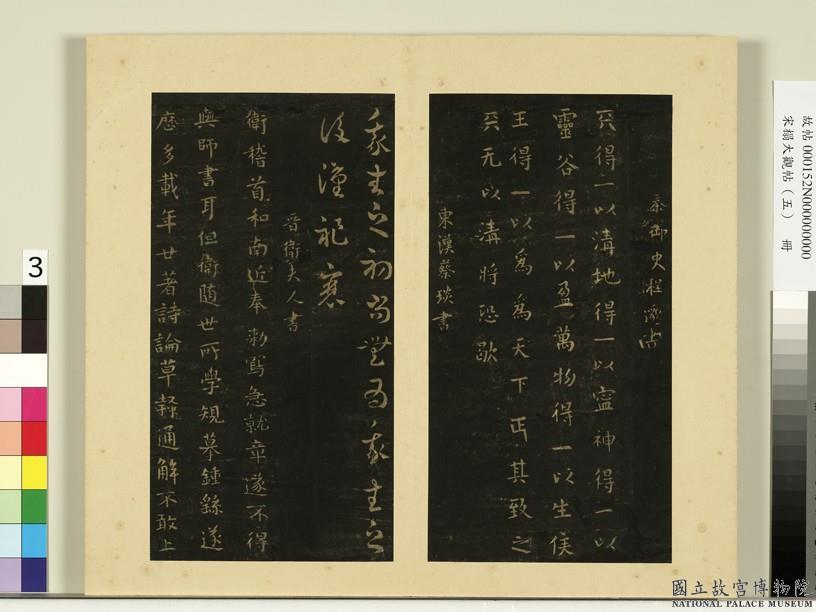 秦御史程邈書
天得一以清地得一以寧神得一以
靈谷得一以盈萬物得一以生侯
王得一以為為天下正其致之
天无以清將恐歇
東漢蔡琰書
我生之初尚無為我生之
後漢祚衰
晉衛夫人書
衛稽首和南近奉勅寫急就章遂不得
與師書耳但衛隨世所學規摹鍾繇遂
歷多載年廿著詩論草隸通解不敢上
故帖 000152N000000000
宋搨大觀帖（五） 冊
3
國立故宮博物院
NATIONAL PALACE MUSEUM